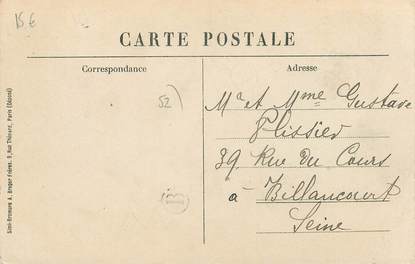 15 €
CARTE POSTALE
Correspondance
Adresse
52
Mr et Mme Gustave
Plissier
39 Rue du Cours
à Billancourt
Seine
Simi-Bromure A. Breger Frères, 9, Rue Thénard, Paris (Déposé)